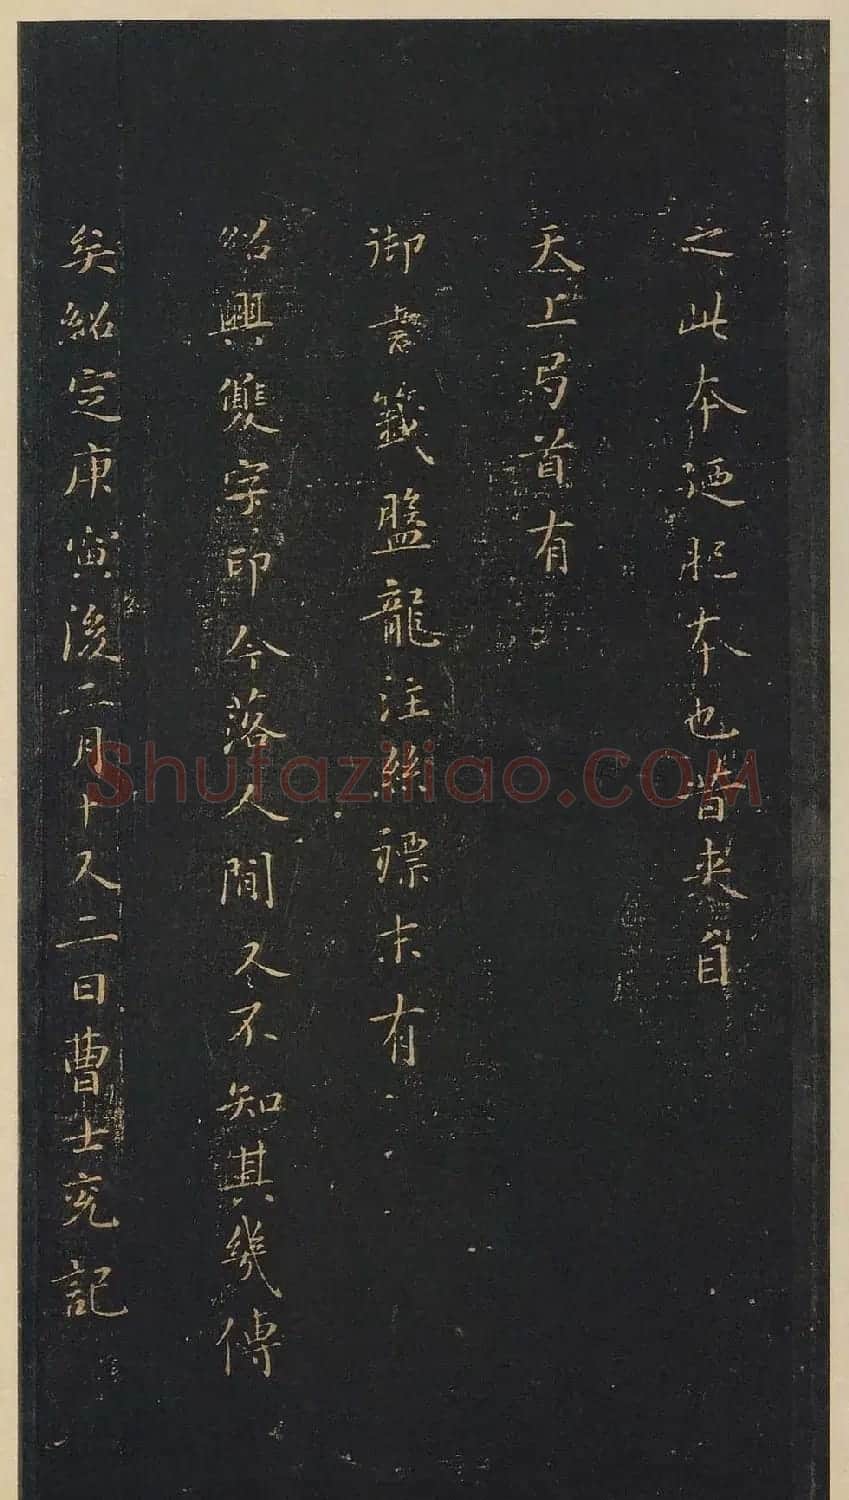 之此本廼肥本也昔來自
天上弓首有
御書籤盤龍注絲褾末有
紹興雙字印今落人間又不知其幾傳
矣紹定庚寅後二月十又二日曹士冕記
Shufaziliao.COM